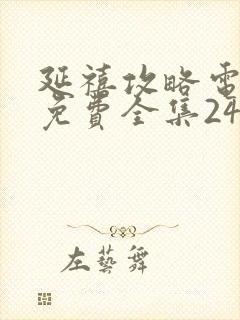 延禧攻略電
免費全集24
左藝舞